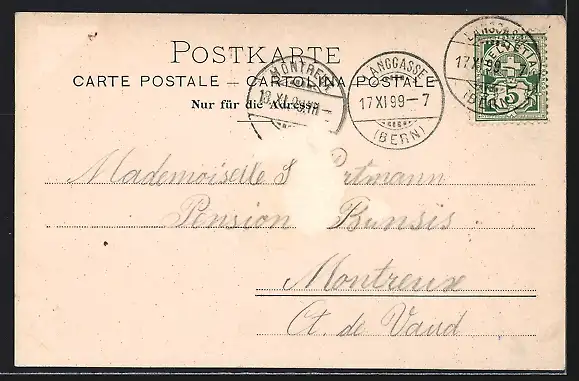 POSTKARTE
CARTE POSTALE — CARTOLINA POSTALE
Nur für die Adresse
MONTREUX
18.XI.99
LÄNGGASSE
17 XI 99 – 7
(BERN)
LÄNGGASSE
17 XI 99
(BERN)
HELVETIA
5
Mademoiselle
Pension
Montreux
Ct. de Vaud